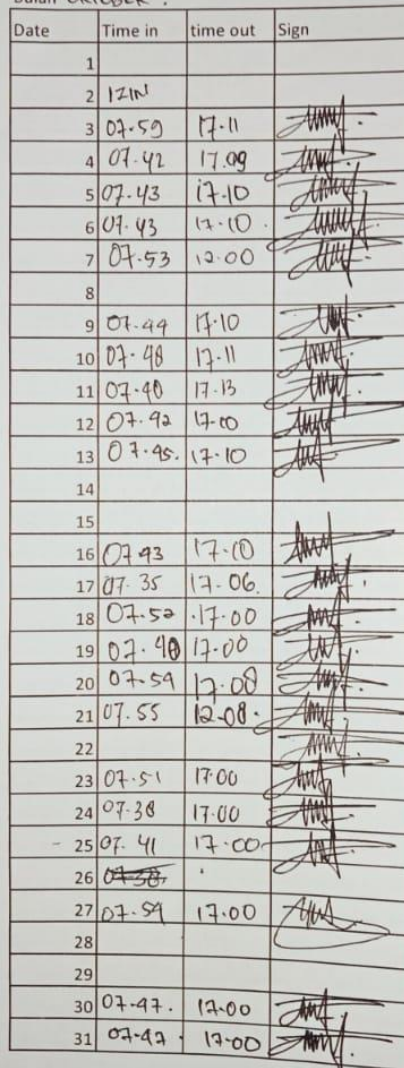 Bulan OKTOBER :
Date Time in time out Sign
1
2 IZIN
3 07.59 17.11
4 07.42 17.09
5 07.43 17.10
6 07.43 17.10
7 07.53 12.00
8
9 07.44 17.10
10 07.48 17.11
11 07.40 17.13
12 07.42 17.00
13 07.45. 17.10
14
15
16 07.43 17.00
17 07.35 17.06.
18 07.52 .17.00
19 07.40 17.00
20 07.54 17.08
21 07.55 12.08.
22
23 07.51 17.00
24 07.38 17.00
25 07.41 17.00
26
27 07.54 17.00
28
29
30 07.47. 17.00
31 07.47. 17.00